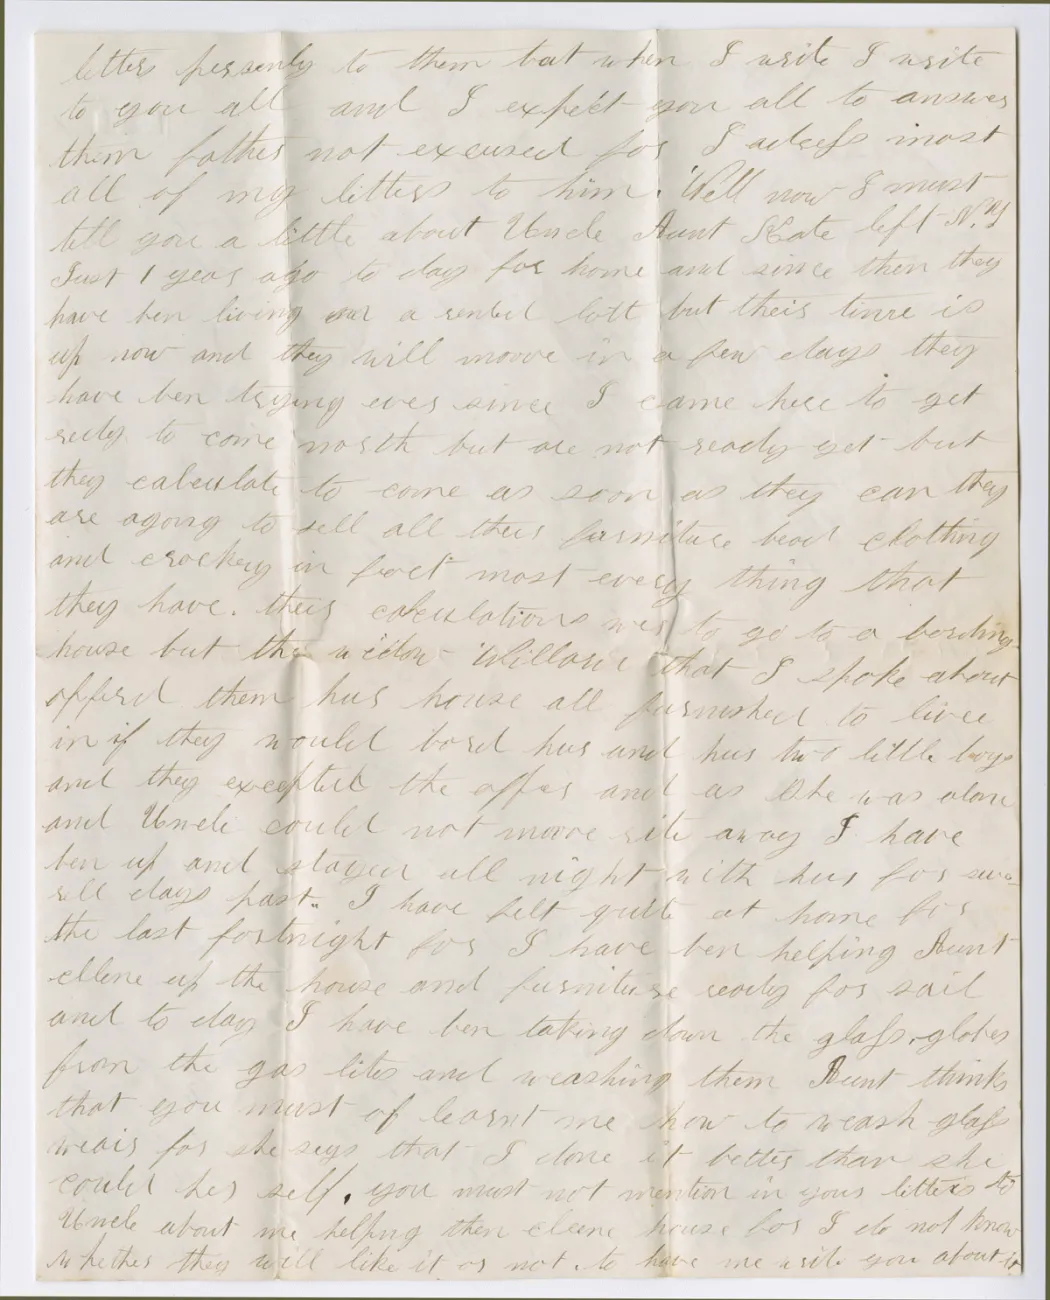 letters persenly to them but when I write I write
to you all and I expect you all to answer
them father not excused for I adress most
all of my letters to him. Well now I must
tell you a little about Uncle Aunt Kate left N.Y
Just 1 year ago to day for home and since then they
have ben living on a rented lott but their time is
up now and they will moove in a few days they
have ben trying ever since I came here to get
redy to come north but are not ready yet but
they calculate to come as soon as they can they
are agoing to sell all their furniture bead clothing
and crockery in fact most every thing that
they have. their calculations was to go to a bording
house but the widow that I spoke about
offerd them hur house all furnished to live
in if they would bord hur and hur two little boys
and they excepted the offer and as She was alone
and Uncle could not moove rite away I have
ben up and stayed all night with hur for sev-
rell days past. I have felt quite at home for
the last fortnight for I have ben helping Aunt
cllene up the house and furniture ready for sail
and to day I have ben taking down the glass globes
from the gas lites and weashing them Aunt thinks
that you must of learnt me how to weash glass
weair for she says that I done it better than she
could her self. you must not mention in your letters to
Uncle about me helping them cleene house for I do not know
whether they will like it or not. to have me write you about it